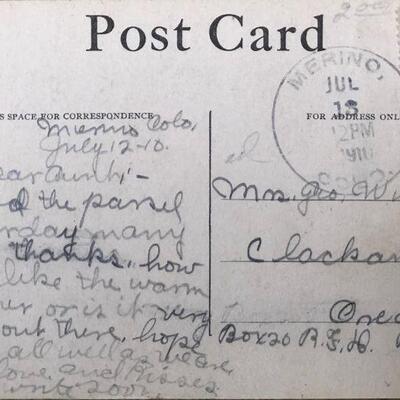 2.00
Post Card
S SPACE FOR CORRESPONDENCE
FOR ADDRESS ONL
MERINO,
JUL
13
12PM
1910
COLO.
Merino Colo,
July 12-10.
ear Aunt:-
d the parsel
rday many
thanks, how
like the warm
er or is it very
out there, hope
all well as we are.
love and kisses
write soon,
Mrs. Geo. W
Clackam
Ore
Box 20 R.F.D.